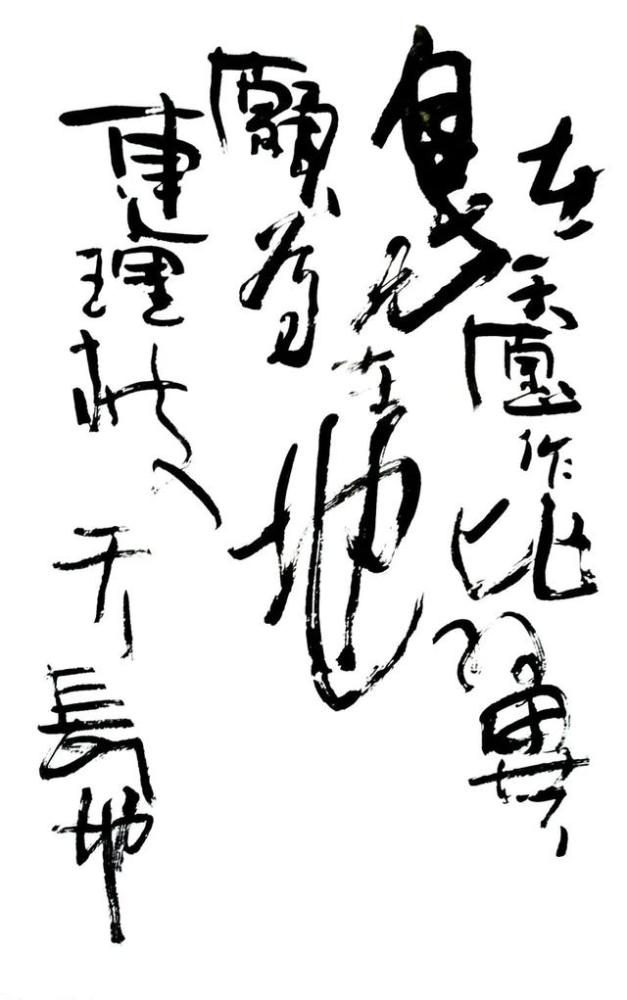 在天愿作比翼
鳥在地
願為
連理枝天長地